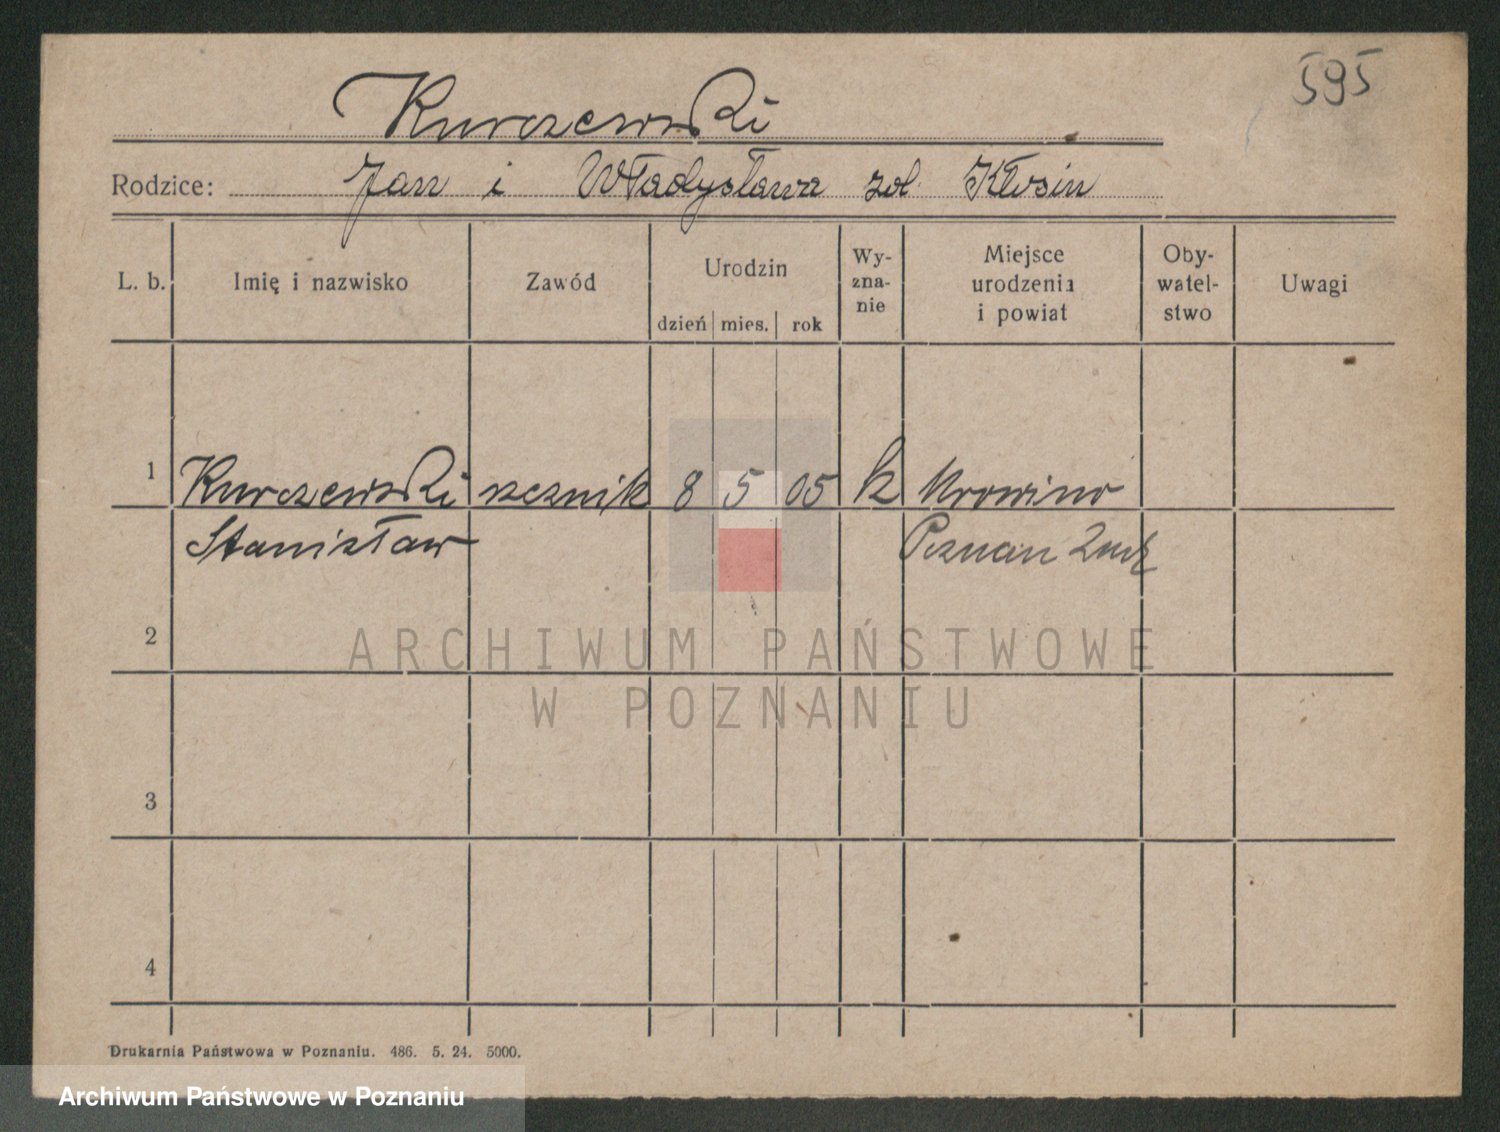 595
Kurczewski
Rodzice: Jan i Władysława zd. Kłosin
L. b. Imię i nazwisko Zawód Urodzin dzień mies. rok Wy-zna-nie Miejsce urodzenia i powiat Oby-watel-stwo Uwagi
1 Kurczewski rzeźnik 8 5 05 k
Stanisław Poznań
2
ARCHIWUM PAŃSTWOWE
W POZNANIU
3
4
Drukarnia Państwowa w Poznaniu. 486. 5. 24. 5000.
Archiwum Państwowe w Poznaniu